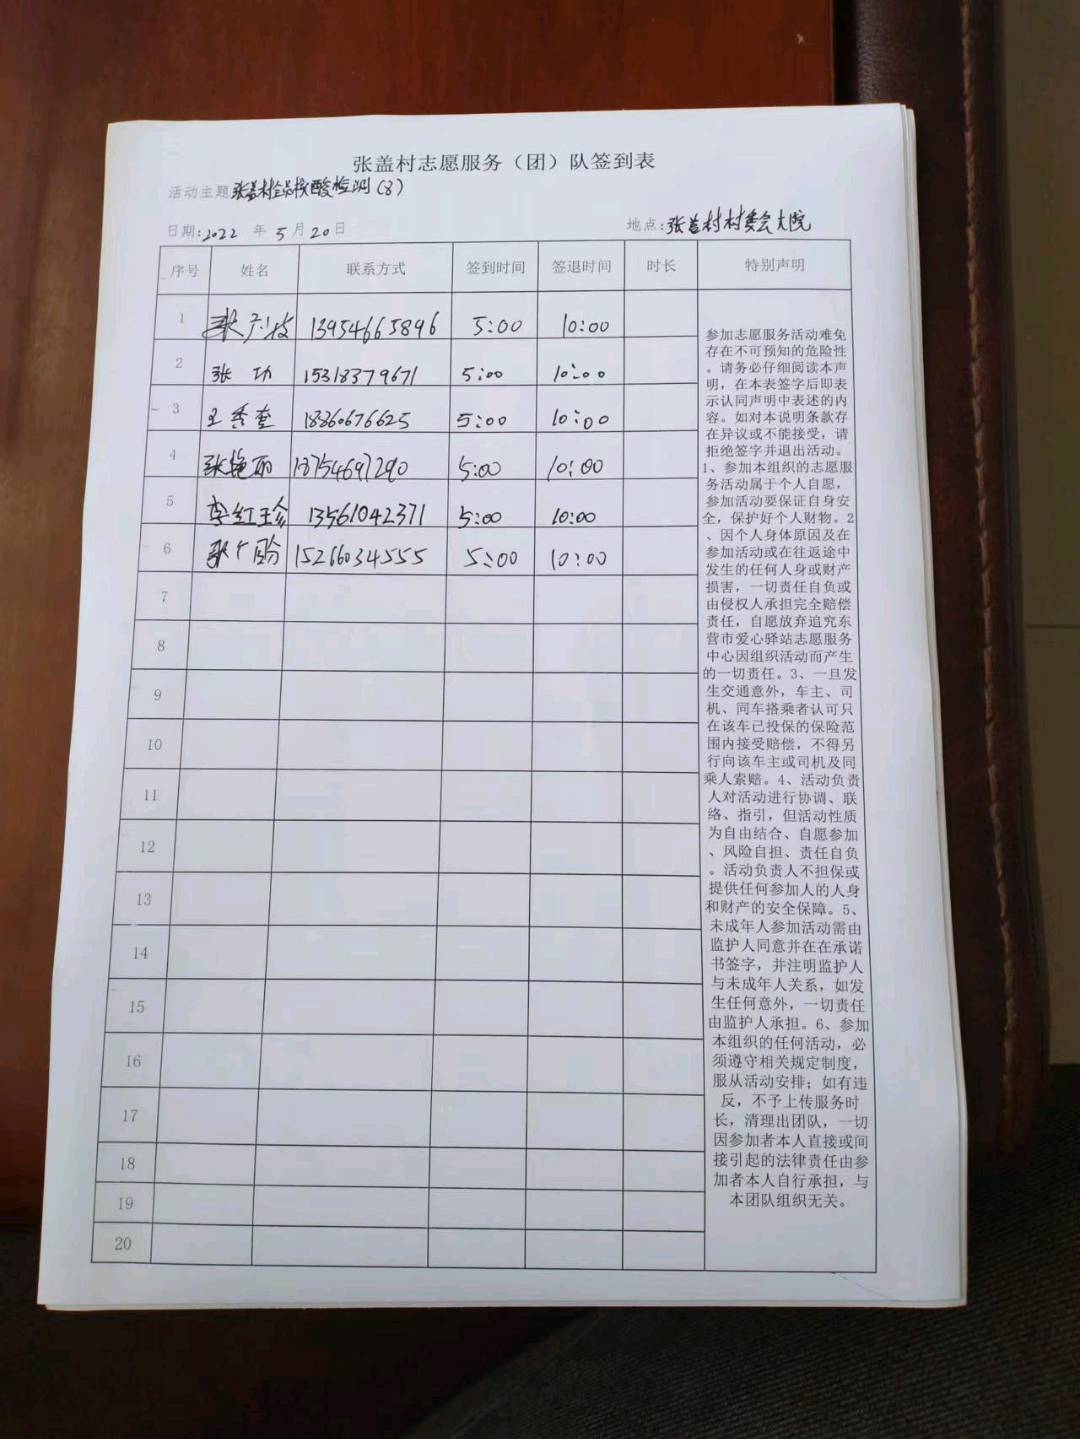 张盖村志愿服务（团）队签到表
活动主题张盖村全员核酸检测（3）
日期:2022 年 5 月 20 日 地点:张盖村村委会大院
序号 姓名 联系方式 签到时间 签退时间 时长 特别声明
1 13954665896 5:00 10:00
2 张 功 15318379671 5:00 10:00
3 王秀奎 18360676625 5:00 10:00
4 张艳丽 18754697290 5:00 10:00
5 李红珍 13561042371 5:00 10:00
6 15266034555 5:00 10:00
7
8
9
10
11
12
13
14
15
16
17
18
19
20
参加志愿服务活动难免
存在不可预知的危险性
。请务必仔细阅读本声
明，在本表签字后即表
示认同声明中表述的内
容。如对本说明条款存
在异议或不能接受，请
拒绝签字并退出活动。
1、参加本组织的志愿服
务活动属于个人自愿，
参加活动要保证自身安
全，保护好个人财物。2
、因个人身体原因及在
参加活动或在往返途中
发生的任何人身或财产
损害，一切责任自负或
由侵权人承担完全赔偿
责任，自愿放弃追究东
营市爱心驿站志愿服务
中心因组织活动而产生
的一切责任。3、一旦发
生交通意外，车主、司
机、同车搭乘者认可只
在该车已投保的保险范
围内接受赔偿，不得另
行向该车主或司机及同
乘人索赔。4、活动负责
人对活动进行协调、联
络、指引，但活动性质
为自由结合、自愿参加
、风险自担、责任自负
。活动负责人不担保或
提供任何参加人的人身
和财产的安全保障。5、
未成年人参加活动需由
监护人同意并在在承诺
书签字，并注明监护人
与未成年人关系，如发
生任何意外，一切责任
由监护人承担。6、参加
本组织的任何活动，必
须遵守相关规定制度，
服从活动安排；如有违
反，不予上传服务时
长，清理出团队，一切
因参加者本人直接或间
接引起的法律责任由参
加者本人自行承担，与
本团队组织无关。